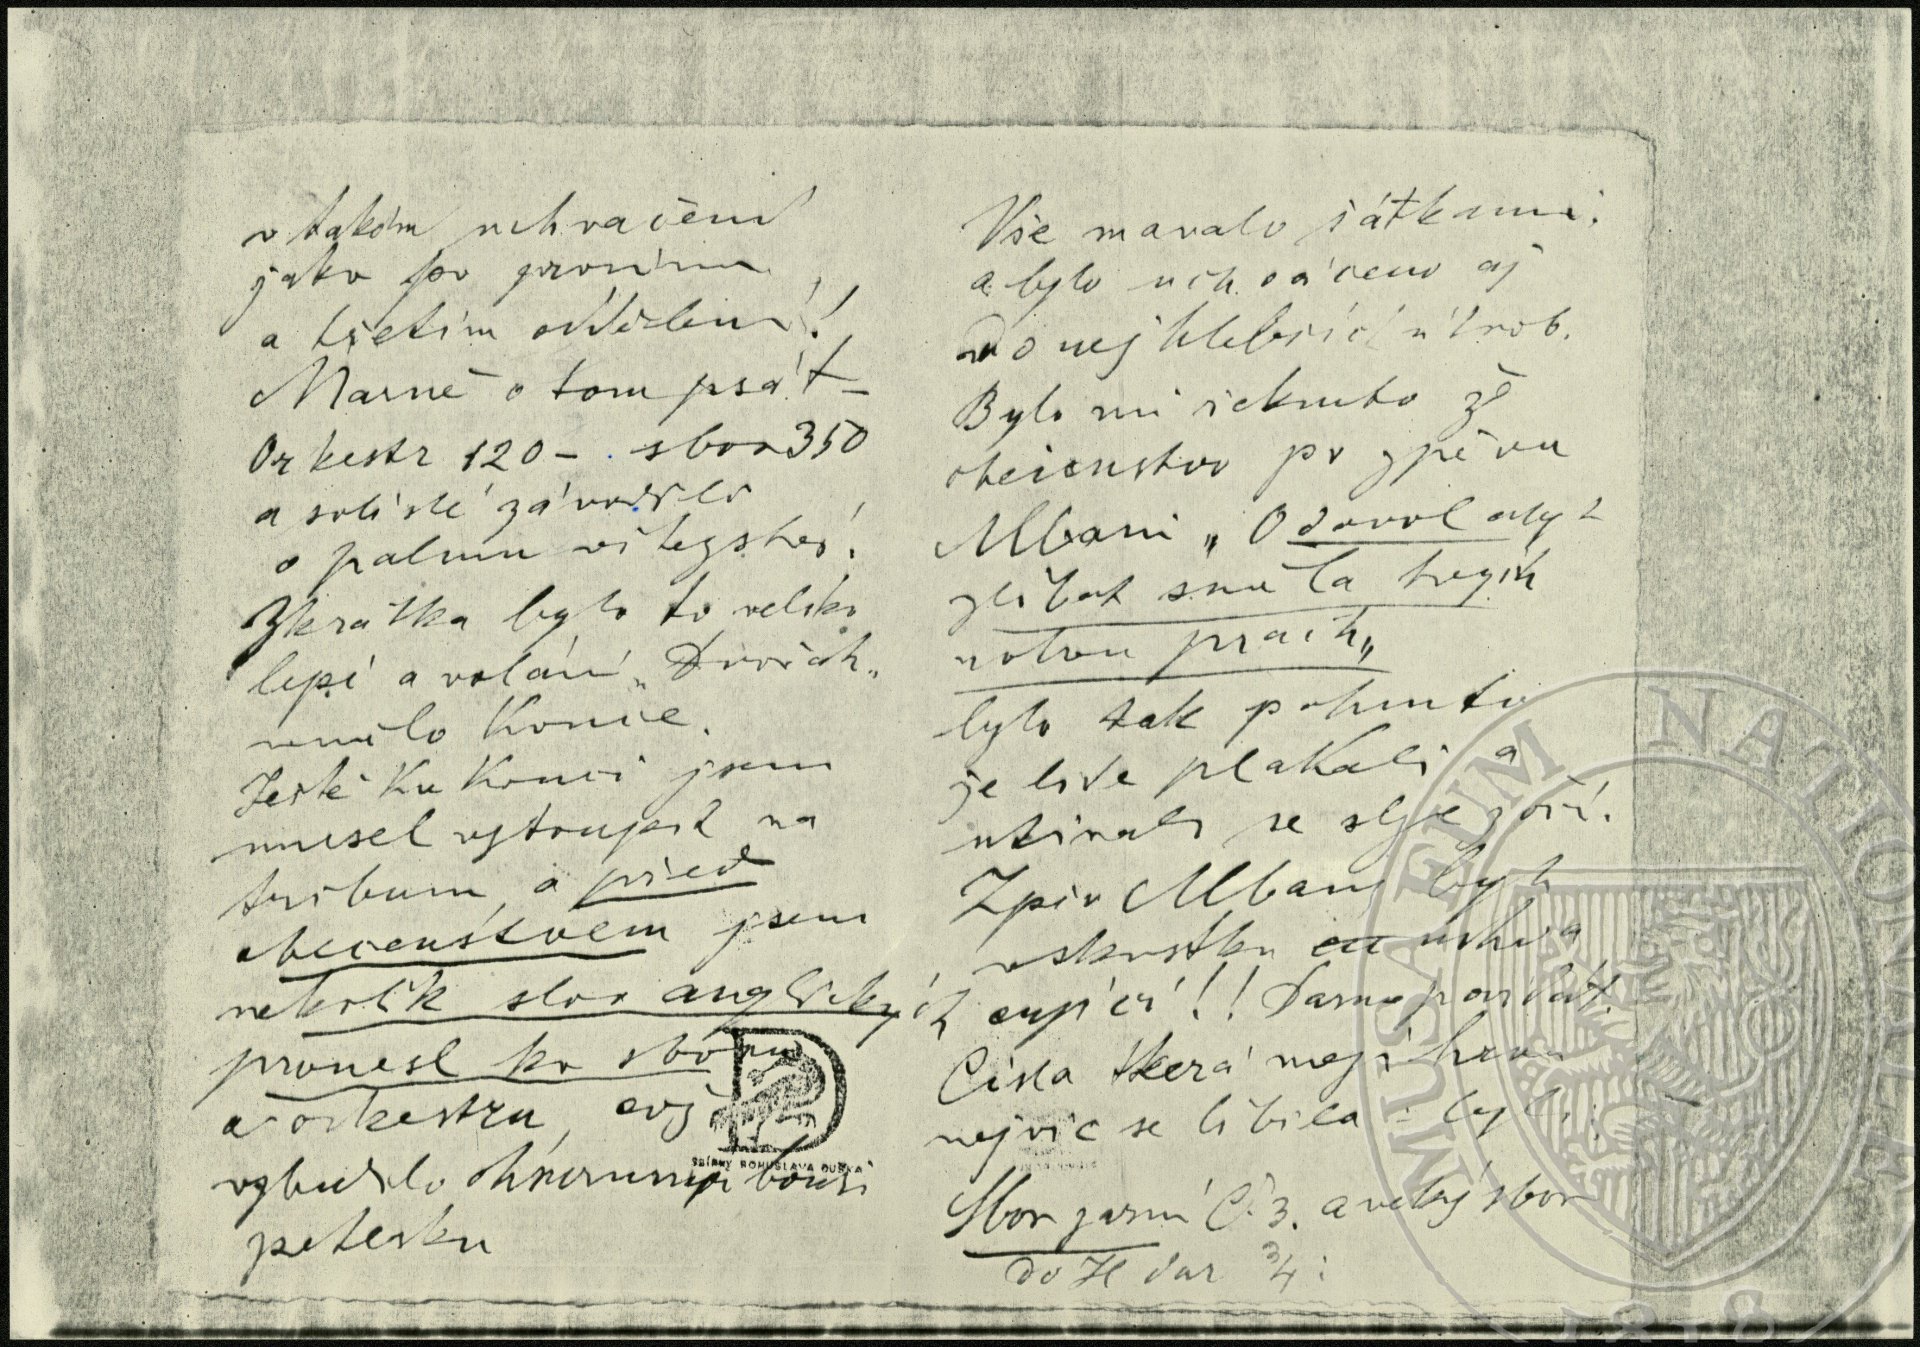 v takém uchvácení
jako po prvním
a třetím oddělení!
Marně o tom psát –
Orkestr 120 – sbor 350
a solisté závodilo
o palmu vítězství!
Zkrátka bylo to veliko
lepé a volání „Dvořák„
nemělo konce.
Ještě ku konci jsem
musel vystoupit na
tribunu, a před
obecenstvem jsem
několik slov anglických
pronesl ke sboru
a orkestru, což
vzbudilo ohromnou bouři
potlesku
Vše mávalo šátkami.
a bylo uchváceno až
do nejhlebších útrob.
Bylo mi řeknuto že
obecenstvo po zpěvu
Albani „O dovol abych
zlíbat směla tvých
nohou prach„
bylo tak pohnuto
že lidé plakali a
utírali se slze z očí.
Zpěv Albani byl
vskutku uchva
cující!! Darmo povídat.
Čísla která mají hrou
nejvíc se líbila: byli:
Sbor jarní Č. 3. a velký sbor
do H dur 3/4:
SBÍRKY BOHUSLAVA DUŠKA
MUSAEUM NATIONALE
1818